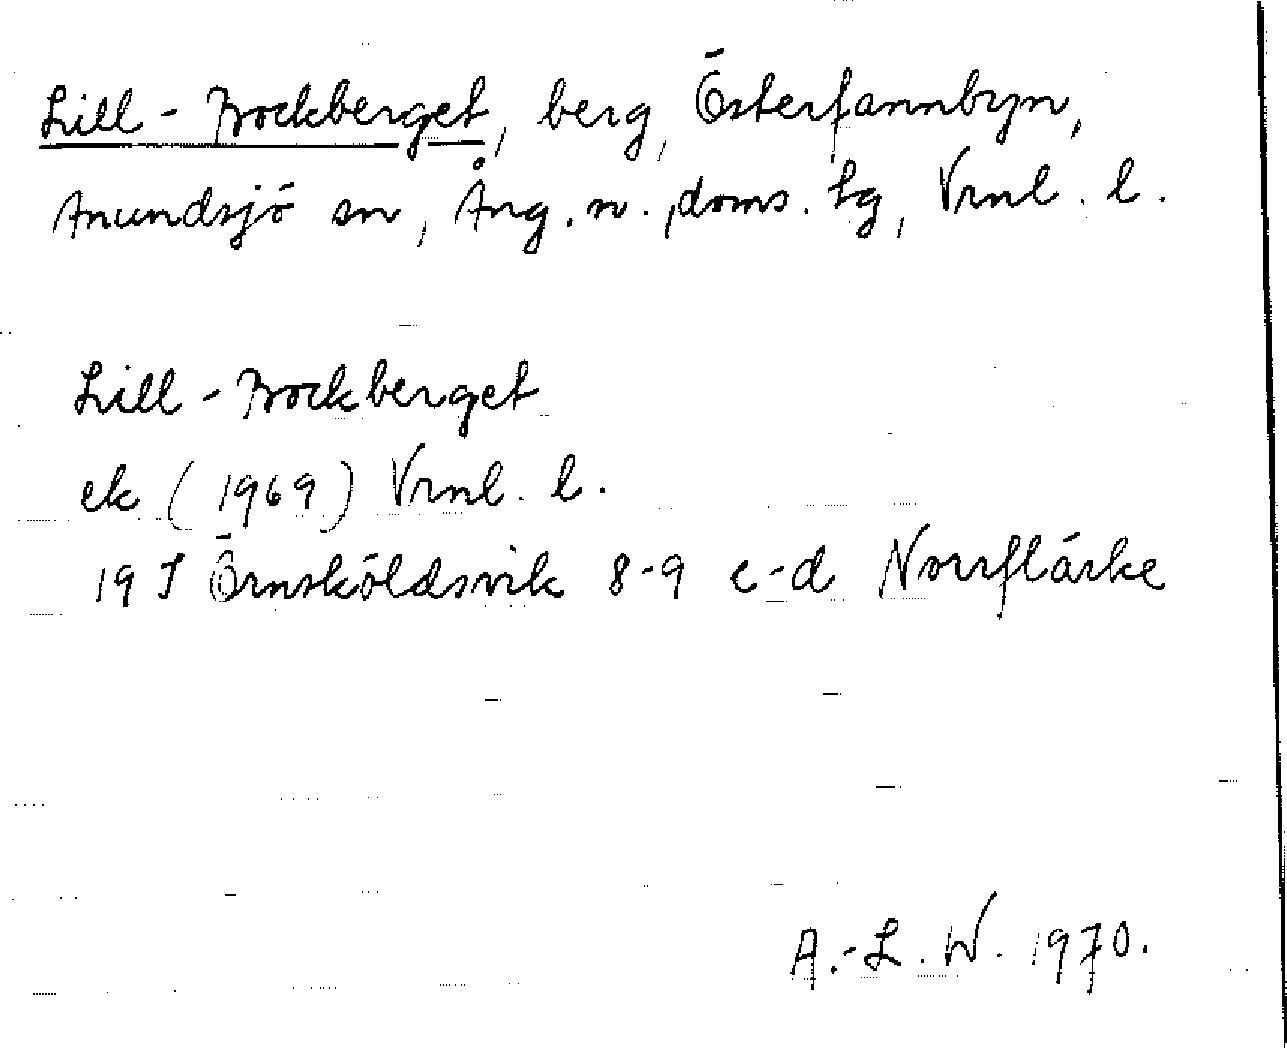 Lill-Bockberget, berg, Österfannbyn,
Anundsjö sn, Ång. n., doms. lg, Vrnl. l.
Lill-Bockberget
ek (1969) Vrnl. l.
19 I Örnsköldsvik 8-9 c-d Norrflärke
A.-L. W. 1970.